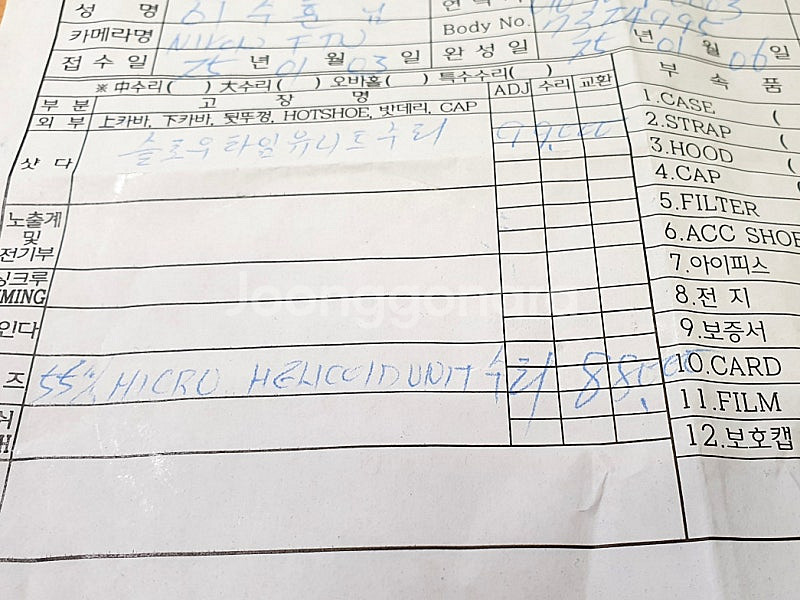 성 명 님
카메라명 NIKON FTN Body No. 7374995
접수일 25 년 01 월 03 일 완성일 25 년 01 월 06 일
※ 中수리( ) 大수리( ) 오바홀( ) 특수수리( ) 부 속 품
부 분 고 장 명 ADJ 수리 교환
외 부 上카바, 下카바, 뒷뚜껑, HOTSHOE, 밧데리, CAP
1.CASE (
샷 다 슬로우타임유니트수리 99,000
2.STRAP (
3.HOOD (
4.CAP (
노출계 및 전기부
5.FILTER
6.ACC SHOE
싱크루
MING
7.아이피스
8.전 지
인다
9.보증서
즈 55% MICRO HELICOID UNIT 수리 88,000
10.CARD
11.FILM
12.보호캡